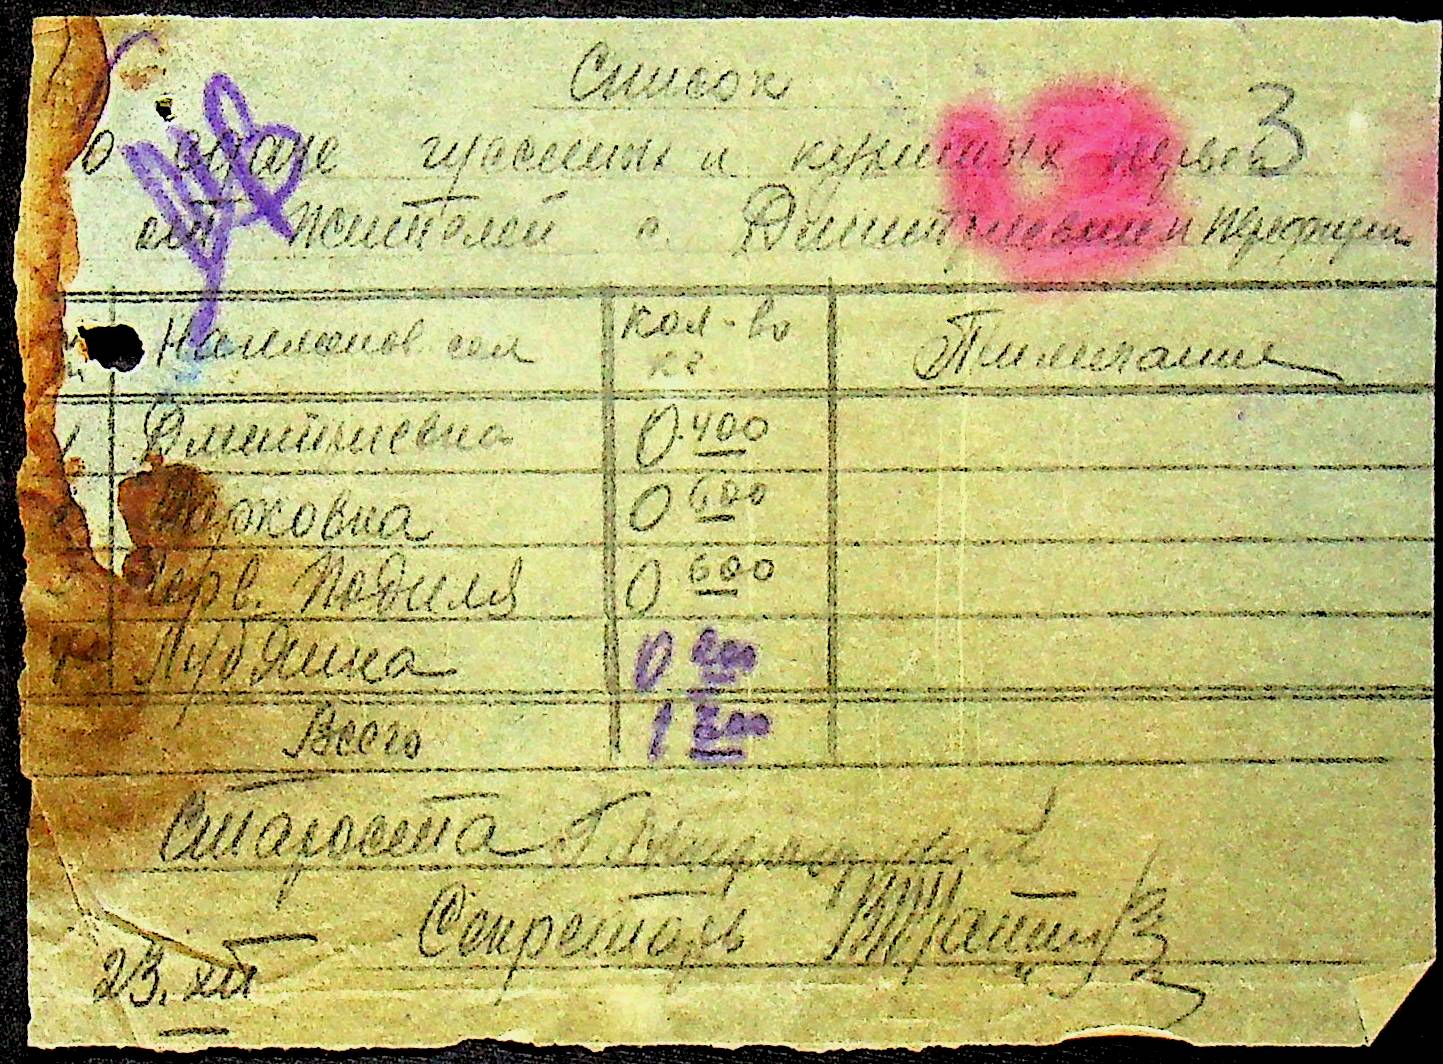 Список
3
о сдаче гусиных и куриных перьев
от жителей с. Дмитриевки и
Наименов. сел
кол-во
кг.
Примечание
1 Дмитриевка 0.400
Марковка 0 600
3 Черв. Поділля 0 600
4 Лубянка 0
Всего 1
Староста
Секретарь
23.XII